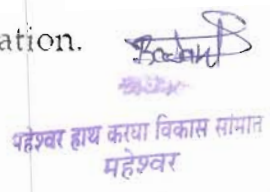 ation.
महेश्वर हाथ करघा विकास समिति
महेश्वर